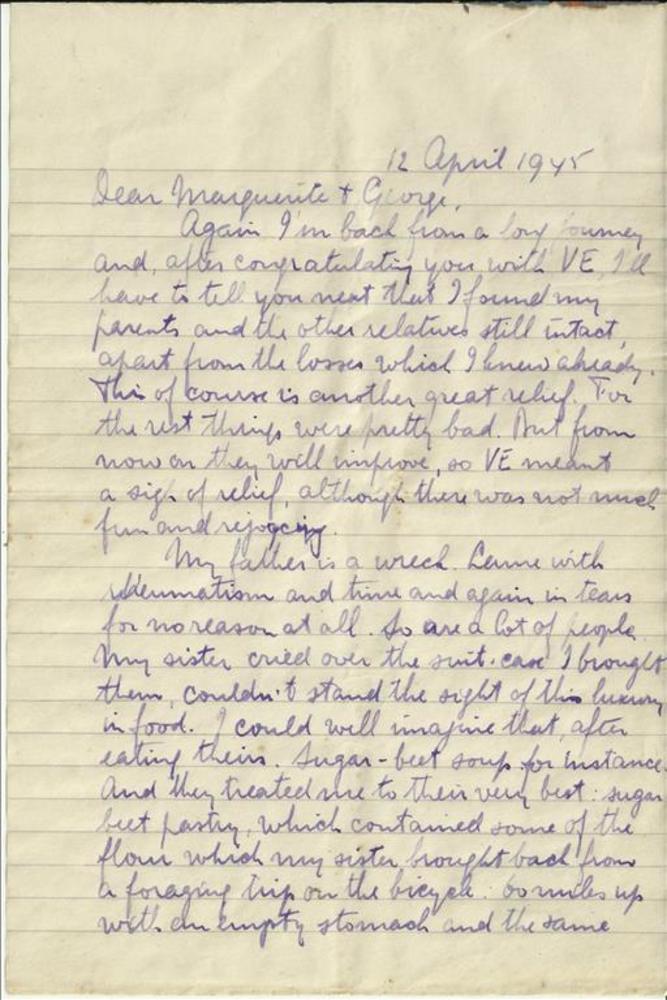 12 April 1945
Dear Marguerite & George,
Again I'm back from a long journey
and, after congratulating you with VE, I'll
have to tell you next that I found my
parents and the other relatives still intact,
apart from the losses which I knew already.
This of course is another great relief. For
the rest things were pretty bad. But from
now on they will improve, so VE meant
a sigh of relief, although there was not much
fun and rejoycing.
My father is a wreck. Lame with
rheumatism and time and again in tears
for no reason at all. So are a lot of people.
My sister cried over the suit-case I brought
them, couldn't stand the sight of this luxury
in food. I could well imagine that, after
eating theirs. Sugar-beet soup for instance.
And they treated me to their very best: sugar
beet pastry, which contained some of the
flour which my sister brought back from
a foraging trip on the bicycle: 60 miles up
with an empty stomach and the same